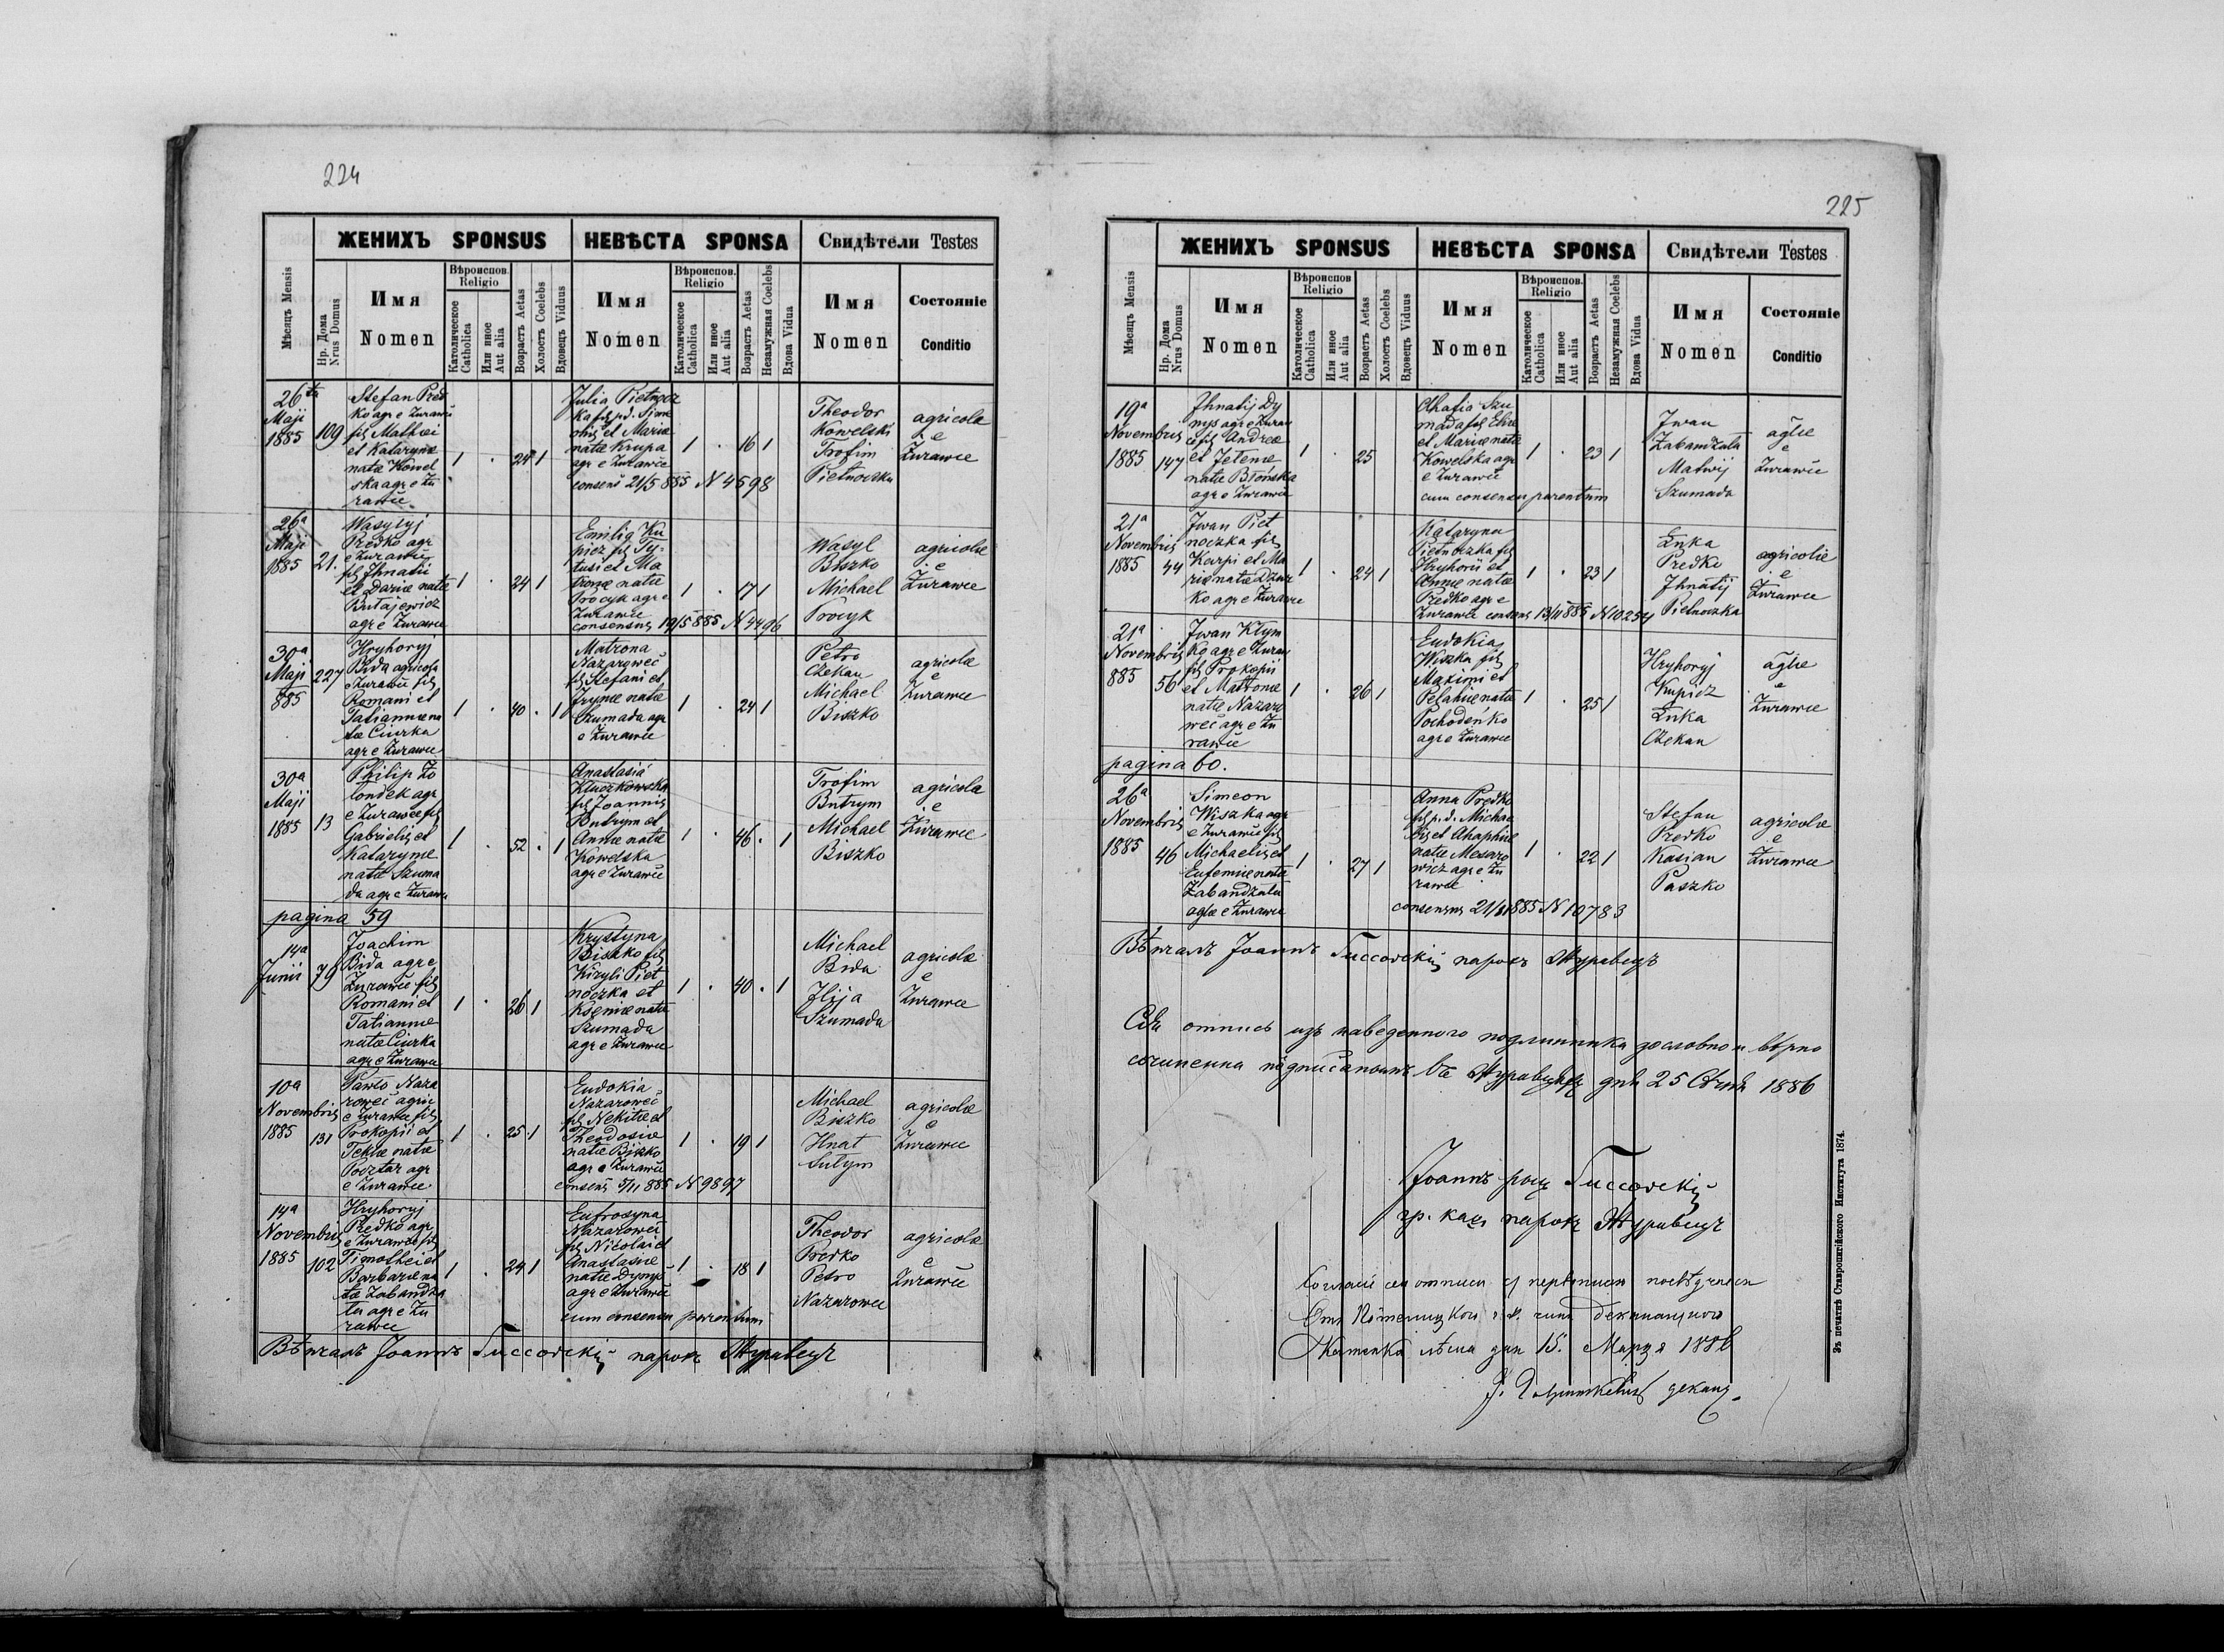 224
ЖЕНИХЪ SPONSUS
НЕВѢСТА SPONSA
Свидѣтели Testes
Мѣсяцъ Mensis
Нр. Дома
Nrus Domus
Имя
Nomen
Вѣроиспов.
Religio
Католическое
Catholica
Или иное
Aut alia
Возрастъ Aetas
Холостъ Coelebs
Вдовецъ Viduus
Имя
Nomen
Вѣроиспов.
Religio
Католическое
Catholica
Или иное
Aut alia
Возрастъ Aetas
Незамужная Coelebs
Вдова Vidua
Имя
Nomen
Состояніе
Conditio
26ta
Maji
1885
109
Stefan Pred
ko agr e Żurawce
fils Mathei
et Katarynæ
natæ Kowel
ska agr e Żu
rawce
1 . 24 1
Julia Pietnocz
ka fils p.d. Sime
onis et Mariæ
natæ Krupa
agr e Żurawce
consens 21/5 885 N 4598
1 . 16 1
Theodor
Kowelski
Trofim
Pietnoczka
agricolæ
e
Żurawce
26a
Maji
1885
21.
Wasylyj
Predko agr
e Żurawce
fils Ihnatii
et Dariæ natæ
agr e Żurawce
1 . 24 1
Emilia Ku
picz fils Ty-
tusi et Ma
tronæ natæ
Procyk agr e
Żurawce
consensus 19/5 885 N 4496
1 . 17 1
Wasyl
Biszko
Michael
Procyk
agricolæ
e
Żurawce
30a
Maji
885
227
Hryhoryj
Bida agricola
e Żurawce fils
Romani et
Tatiannæ na
tæ Ciurka
agr e Żurawce
1 . 40 . 1
Matrona
Nazaroweć
fils Stefani et
Irynæ natæ
Szumada agr
e Żurawce
1 . 24 1
Petro
Czekan
Michael
Biszko
agricolæ
e
Żurawce
30a
Maji
1885
13
Philip Żo
londek agr
e Żurawce fils
Gabrielis et
Katarynæ
natæ Szuma
da agr e Żurawce
1 . 52 . 1
Anastasia
Kluczkowska
fils Joannis
Butrym et
Annæ natæ
Kowelska
agr e Żurawce
1 . 46 . 1
Trofim
Butrym
Michael
Biszko
agricolæ
e
Żurawce
pagina 59
14a
Junii
79
Joachim
Bida agr e
Żurawce fils
Romani et
Tatiannæ
natæ Ciurka
agr e Żurawce
1 . 26 1
Krystyna
Biszko fils
Kiryli Piet
noczka et
Kseniæ natæ
Szumada
agr e Żurawce
1 . 40 . 1
Michael
Bida
Ilija
Szumada
agricolæ
e
Żurawce
10a
Novembris
1885
131
Pawło Naza
roweć agric
e Żurawce fils
Prokopii et
Teklæ natæ
agr
e Żurawce
1 . 25 . 1
Eudokia
Nazaroweć
fils Nekitæ et
Theodosiæ
natæ Biszko
agr e Żurawce
consens 5/11 885 N 9897
1 . 19 1
Michael
Biszko
Hnat
Sutym
agricolæ
e
Żurawce
14a
Novembris
1885
102
Hryhoryj
Predko agr
e Żurawce fils
Timothei et
Barbaræ na
tæ Zabandża
ła agr e Żu
rawce
1 . 24 1
Eufrosyna
Nazaroweć
fils Nicolai et
Anastasiæ
natæ Dynys
agr e Żurawce
cum consensu parentum
1 . 18 1
Theodor
Predko
Petro
Nazarowec
agricolæ
e
Żurawce
Вѣнчалъ Іоаннъ Гиссовскій парохъ Журавецъ
225
ЖЕНИХЪ SPONSUS
НЕВѢСТА SPONSA
Свидѣтели Testes
Мѣсяцъ Mensis
Нр. Дома
Nrus Domus
Имя
Nomen
Вѣроиспов
Religio
Католическое
Catholica
Или иное
Aut alia
Возрастъ Aetas
Холостъ Coelebs
Вдовецъ Viduus
Имя
Nomen
Вѣроиспов.
Religio
Католическое
Catholica
Или иное
Aut alia
Возрастъ Aetas
Незамужная Coelebs
Вдова Vidua
Имя
Nomen
Состояніе
Conditio
19a
Novembris
1885
147
Ihnatij Dy
nys agr e Żuraw
ce fils Andreæ
et Jelenæ
natæ Błońska
agr e Żurawce
1 . 25
Ahafia Szu
mada fils Eliæ
et Mariæ natæ
Kowelska agr
e Żurawce
cum consensu parentum
1 . 23 1
Iwan
Zabandżała
Matwij
Szumada
aglæ
e
Żurawce
21a
Novembris
1885
44
Iwan Piet
noczka fils
Karpi et Ma
riæ natæ Dziur
ko agr e Żurawce
1 . 24 1
Kataryna
Pietnoczka fils
Hryhorii et
Annæ natæ
Predko agr e
Żurawce consens 13/11 885 N 10254
1 . 23 1
Łuka
Predko
Ihnatij
Pietnoczka
agricolæ
e
Żurawce
21a
Novembris
885
56
Iwan Kłym
ko agr e Żuraw
fils Prokopii
et Matronæ
natæ Nazaro
weć agr e Żu
rawce
1 . 26 1
Eudokia
Wiszka fils
Maximi et
Pelahiæ natæ
Pochodeńko
agr e Żurawce
1 . 25 1
Hryhoryj
Kupicz
Łuka
Czekan
aglæ
e
Żurawce
pagina 60.
26a
Novembris
1885
46
Simeon
Wiszka agr
e Żurawce fils
Michaelis et
Eufemiæ natæ
Zabandżała
aglæ e Żurawce
1 . 27 1
Anna Predko
fils p.d. Michae
lis et Ahaphiæ
natæ Mesaro
wicz agr e Żu
rawce
consensus 21/11 885 N 10783
1 . 22 1
Stefan
Predko
Kasian
Paszko
agricolæ
e
Żurawce
Вѣнчалъ Іоаннъ Гиссовскій парохъ Журавецъ
Сія отпись изъ наведенного подлинника дословно и вѣрно
сочиненна подписаннымъ Въ дня 25 Сѣчня 1886
Іоаннъ Гиссовскій
гр. кат. парохъ Журавецъ
15. Марця 1886
деканъ
Зъ печатнѣ Ставропигійского Института 1874.